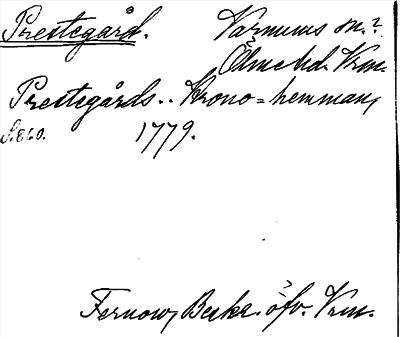 Prestegård. Varnums sn.?
Ölme hd. Vrm.
Prestegårds.. Krono=hemman,
S. 860. 1779.
Fernow, Beskr. öfv. Vrm.